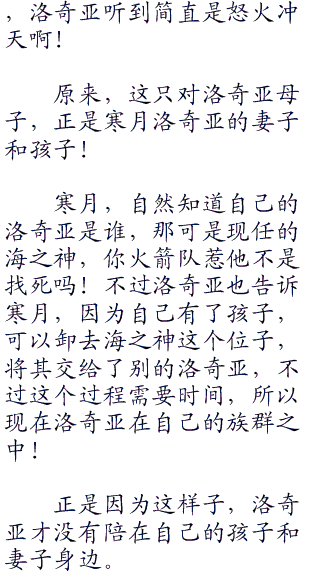 ，洛奇亚听到简直是怒火冲
天啊！
原来，这只对洛奇亚母
子，正是寒月洛奇亚的妻子
和孩子！
寒月，自然知道自己的
洛奇亚是谁，那可是现任的
海之神，你火箭队惹他不是
找死吗！不过洛奇亚也告诉
寒月，因为自己有了孩子，
可以卸去海之神这个位子，
将其交给了别的洛奇亚，不
过这个过程需要时间，所以
现在洛奇亚在自己的族群之
中！
正是因为这样子，洛奇
亚才没有陪在自己的孩子和
妻子身边。